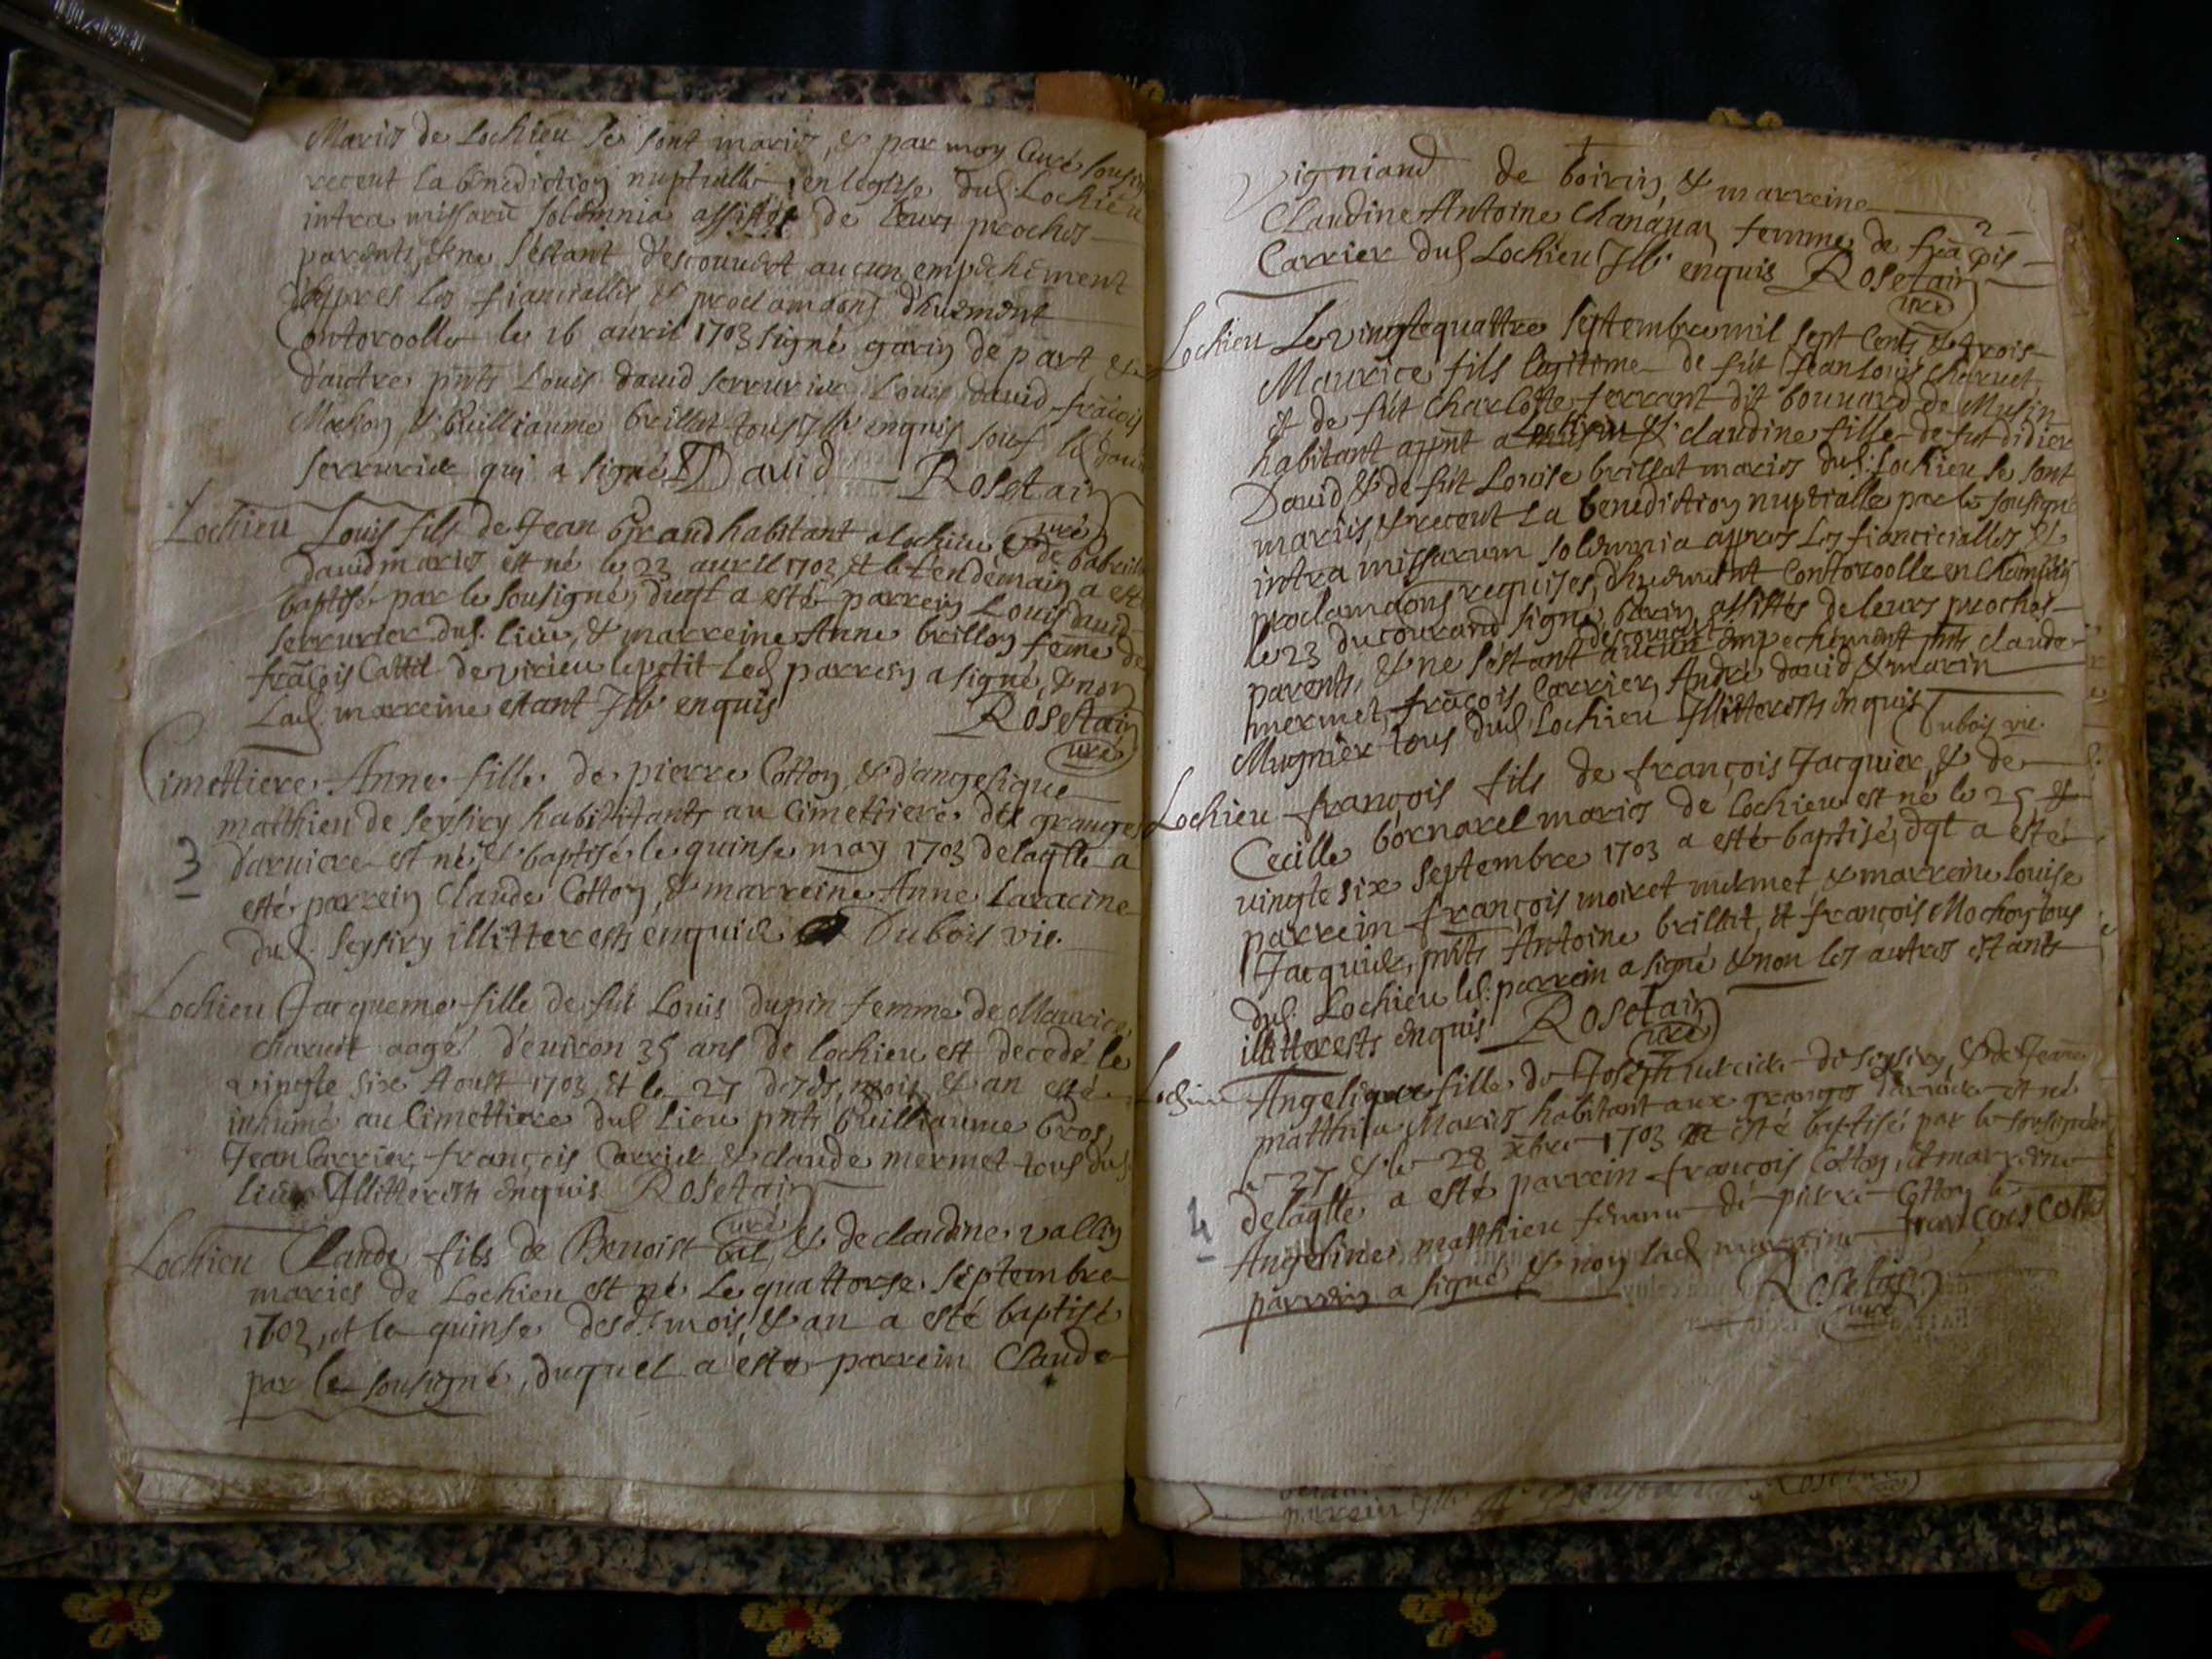 Maries de Lochieu se sont maries, & par moy Curé sousig
receut la benediction nuptialle en leglise dud. Lochieu
intra missarū solemnia assistes de leurs proches
parents, & ne sestant descouvert aucun empechement
appres les fianciallies & proclamaons dhuement
Controolle le 16 auril 1703 signé garin de part &
d'autre pnts Louis dauid serrurier Louis dauid françois
Mochon & Guilliaume brillat tous Ill. enquis sauf led dauid
serrurier qui a signé L David Rosetain
curé
Lochieu Louis fils de Jean Grand habitant a lochieu & de Gabrielle
dauid maries est né le 23 auril 1703 & le lendemain a esté
baptisé par le sousigné, duql a esté parrein Louis dauid
serrurier dud. lieu, & marreine Anne brillon feme de
fraçois Cattil de virieu lepetit Led parrein a signé, & non
Lad. marreine estant Ill. enquis Rosetain
curé
Cimettiere Anne fille de pierre Cotton & d'angelique
matthieu de seysiry habititants au Cimettiere des granges
3 darniere est né & baptisé le quinse may 1703 delaqlle a
esté parrein Claude Cotton, & marreine Anne Laracine
dud. seysiry illitterests enquis Dubois vic.
Lochieu Jacqueme fille de fut Louis dupin femme de Maurice
charuet aagé d'enuiron 35 ans de lochieu est decedé le
vingte six Aoust 1703 et le 27 desds. mois & an esté
inhumé au Cimettiere dud lieu pnts Guilliaume Gros,
Jean Carrier, françois Carrier & claude mermet tous dud.
lieu Illitterests enquis Rosetain
curé
Lochieu Claude fils de Benoist bal & de claudine vallin
maries de Lochieu est né Le quattorse septembre
1703, et le quinse desd. mois & an a esté baptisé
par le sousigné, duquel a esté parrein Claude
Vigniand de boirin, & marreine
Claudine Antoine Chanauaz femme de fraçois
Carrier dud Lochieu Ill. enquis Rosetain
curé
Lochieu Le vingtequattre septembre mil sept Cents & trois
Maurice fils legitime de fut Jean louis charuet
et de fut Charlotte ferrant dit bouuard de Musin
habitant apnt a Lochieu & claudine fille de fut didier
David & de fut Louise brillat maries dud. Lochieu se sont
mariés, & receut La benediction nuptialle par le sousigné
intra missarum solemnia appres Les fianciciallies &
proclamaons requises, dhuement Controolle en Champ
le 23 du courand signé garin, assistes de leurs proches
parents, & ne sestant descouuert aucun empechement pnts claude
mermet, fraçois Carrier, André dauid & marin
Mugnier tous dud Lochieu Illitterests enquis Dubois vic.
Lochieu françois fils de françois Jacquier, & de
Cecille bornarel maries de lochieu est né le 25 &
vingte six septembre 1703 a esté baptisé, dqt a esté
parrein françois moiret mermet & marreine louise
Jacquier, pnts Antoine brillat, et françois Mochon tous
dud. Lochieu led. parrein a signé & non les autres estants
illitterests enquis Rosetain
curé
Lochieu Angelique fille de Joseph de seysiry, & de Jeane
matthieu Maries habitant aux granges darniere est né
le 27 & le 28 xbre 1703 esté baptisé par le sousigné
4 delaqlle a esté parrein françois Cotton, et marreine
Angeline matthieu femme de pierre Cotton le
parrein a signé & non lad marreine francois Cotton
Rosetain
curé